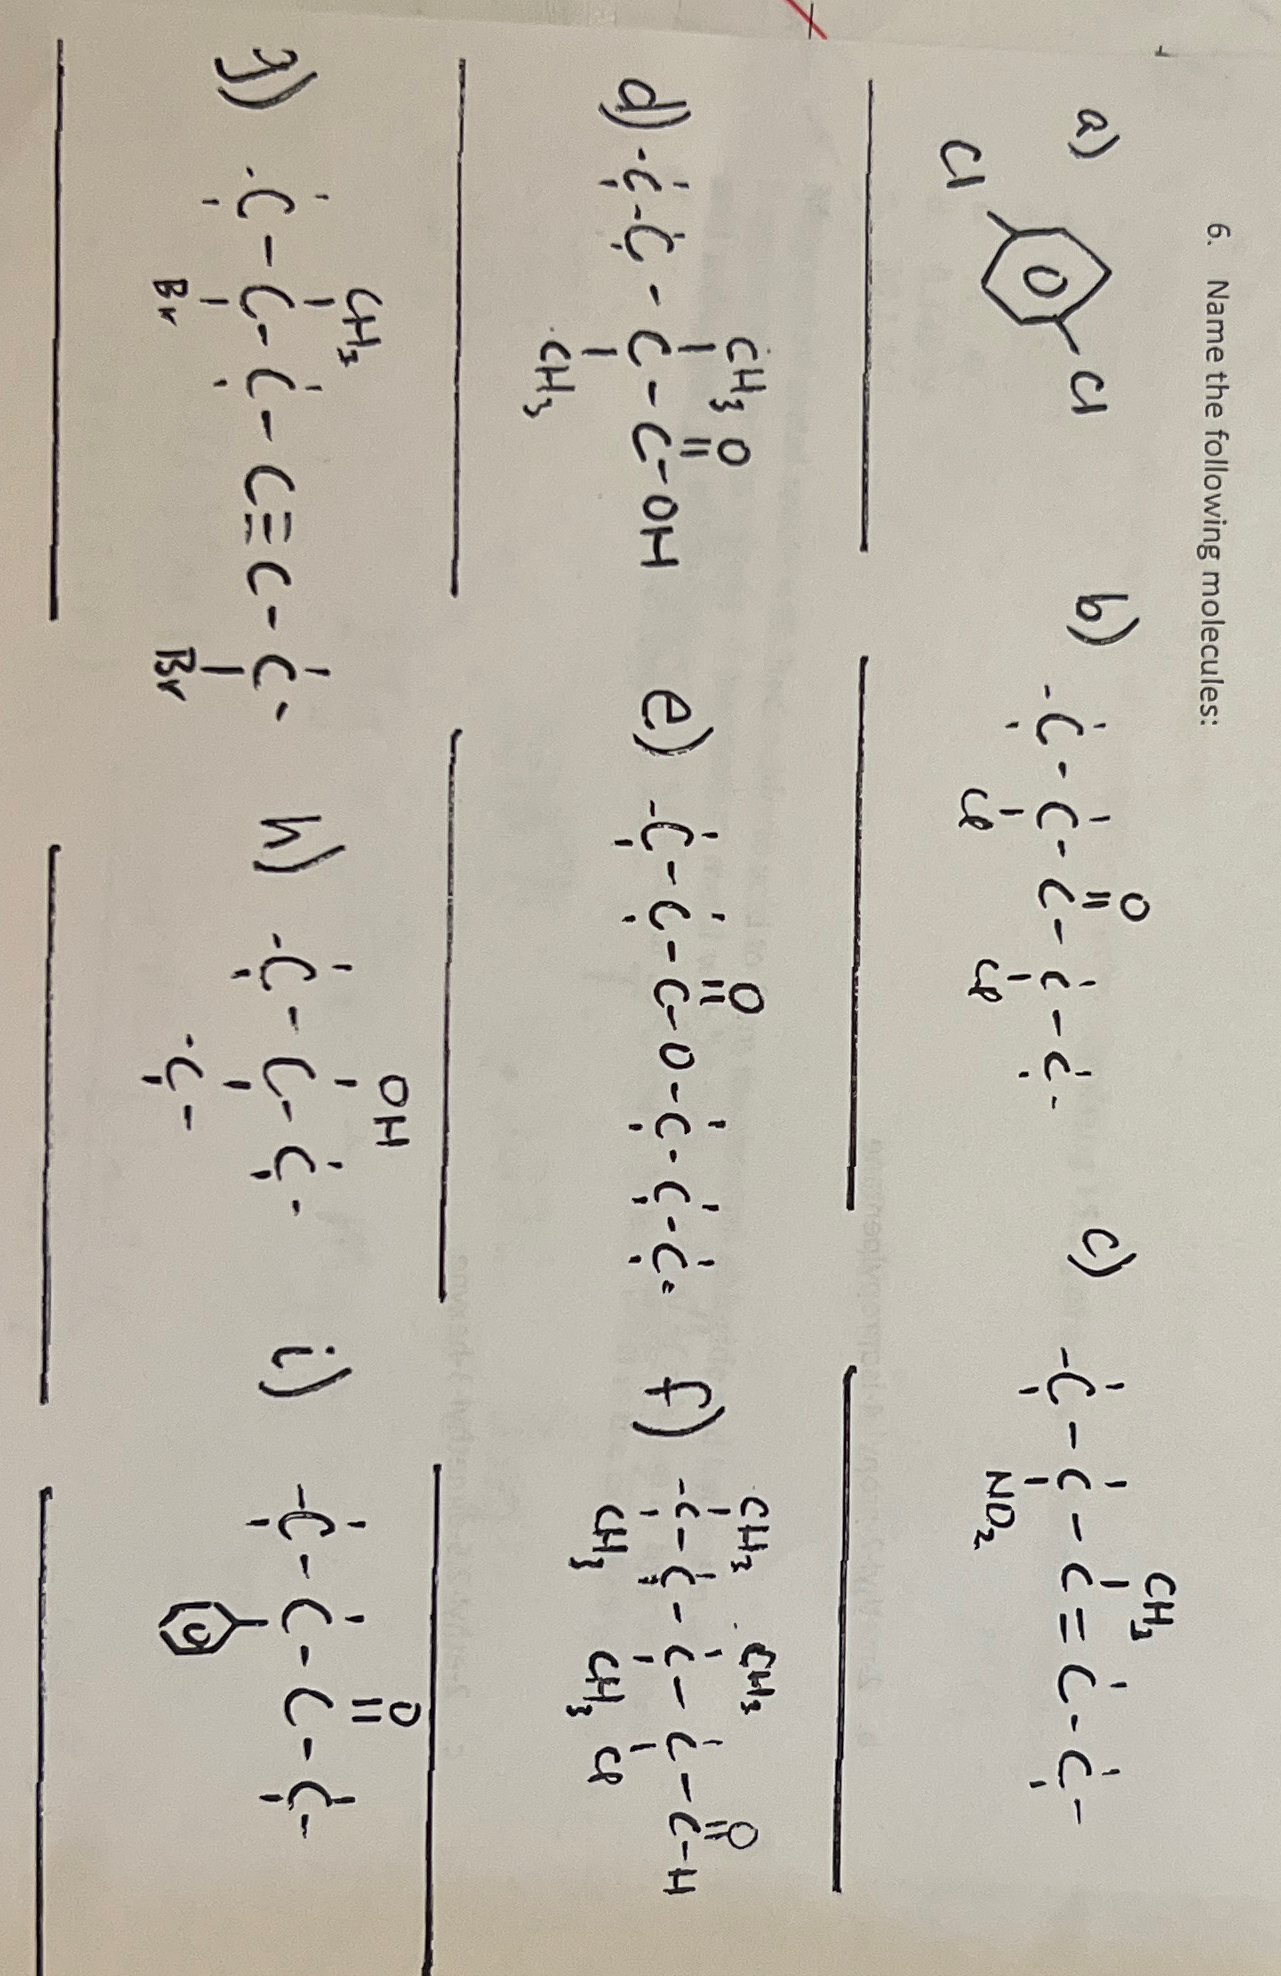 6. Name the following molecules:
a) b) c)
Cl Cl
O
-C-C-C-C-C-
Cl Cl
CH3
-C-C-C=C-C-
NO2
d) e) f)
CH3 O
-C-C-C-C-OH
CH3
O
-C-C-C-O-C-C-C-
CH3 CH3 O
-C-C-C-C-C-H
CH3 CH3 Cl
g) h) i)
CH3
-C-C-C-C≡C-C-
Br Br
OH
-C-C-C-
-C-
O
-C-C-C-C-